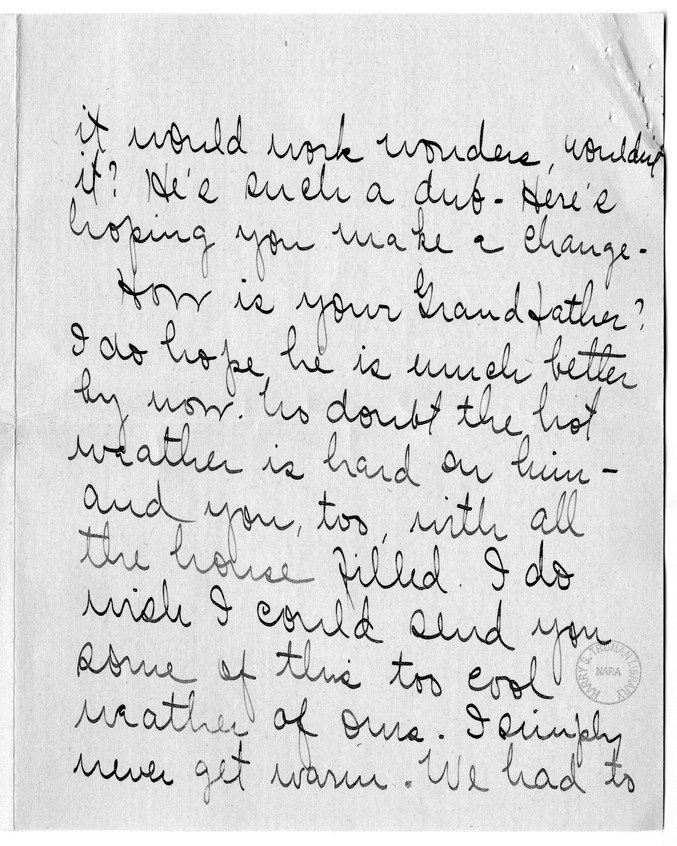 it would work wonders, wouldn't
it? He's such a dub - Here's
hoping you make a change -
How is your Grandfather?
I do hope he is much better
by now. No doubt the hot
weather is hard on him -
and you, too, with all
the house filled. I do
wish I could send you
some of this too cool
weather of ours. I simply
never get warm. We had to
HARRY S. TRUMAN LIBRARY
NARA